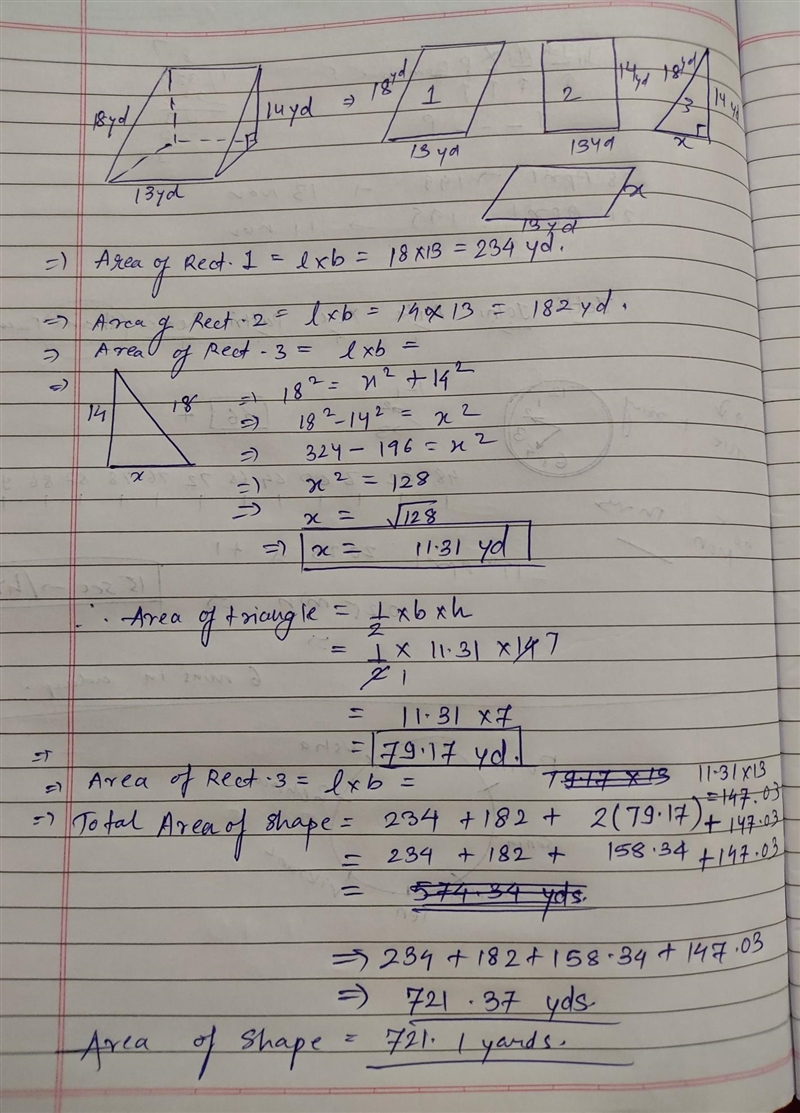 18yd 14 yd ⇒ 18yd 1 2 14 yd 18yd 3 14 yd
13yd 13 yd 13yd x
x
13yd
⇒ Area of Rect. 1 = l x b = 18 x 13 = 234 yd.
⇒ Area of Rect. 2 = l x b = 14 x 13 = 182 yd.
⇒ Area of Rect - 3 = l x b =
⇒ 14 18 x ⇒ 18² = x² + 14²
⇒ 18² - 14² = x²
⇒ 324 - 196 = x²
⇒ x² = 128
⇒ x = √128
⇒ x = 11.31 yd
∴ Area of triangle = 1/2 x b x h
= 1/2 x 11.31 x 14 7
1
= 11.31 x 7
⇒ = 79.17 yd.
⇒ Area of Rect. 3 = l x b = 79.17 x 13 11.31 x 13
= 147.03
⇒ Total Area of shape = 234 + 182 + 2(79.17) + 147.03
= 234 + 182 + 158.34 + 147.03
= 574.34 yds.
⇒ 234 + 182 + 158.34 + 147.03
⇒ 721.37 yds.
Area of shape = 721.1 yards.